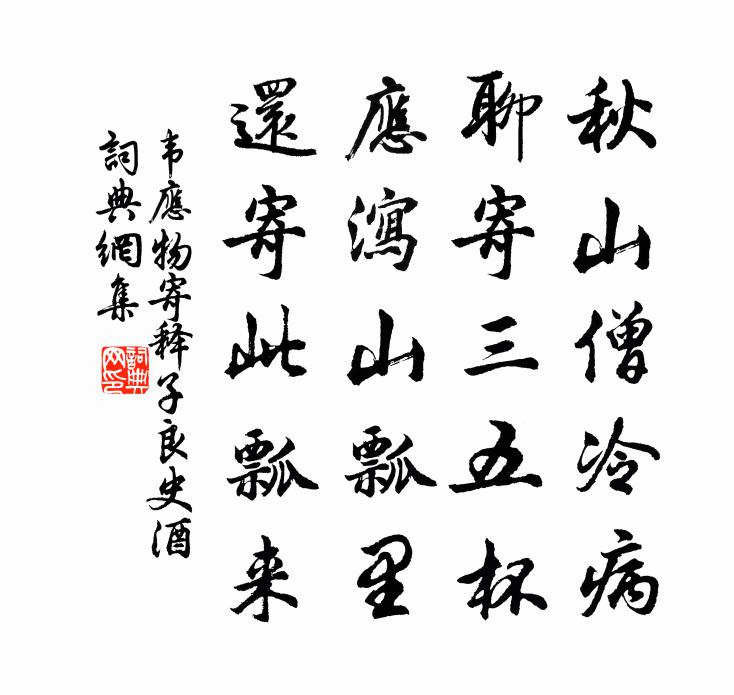 秋山僧冷病
聊寄三五杯
應瀉山瓢里
還寄此瓢来
韦應物寄释子良史酒
詞典網集
詞典网印